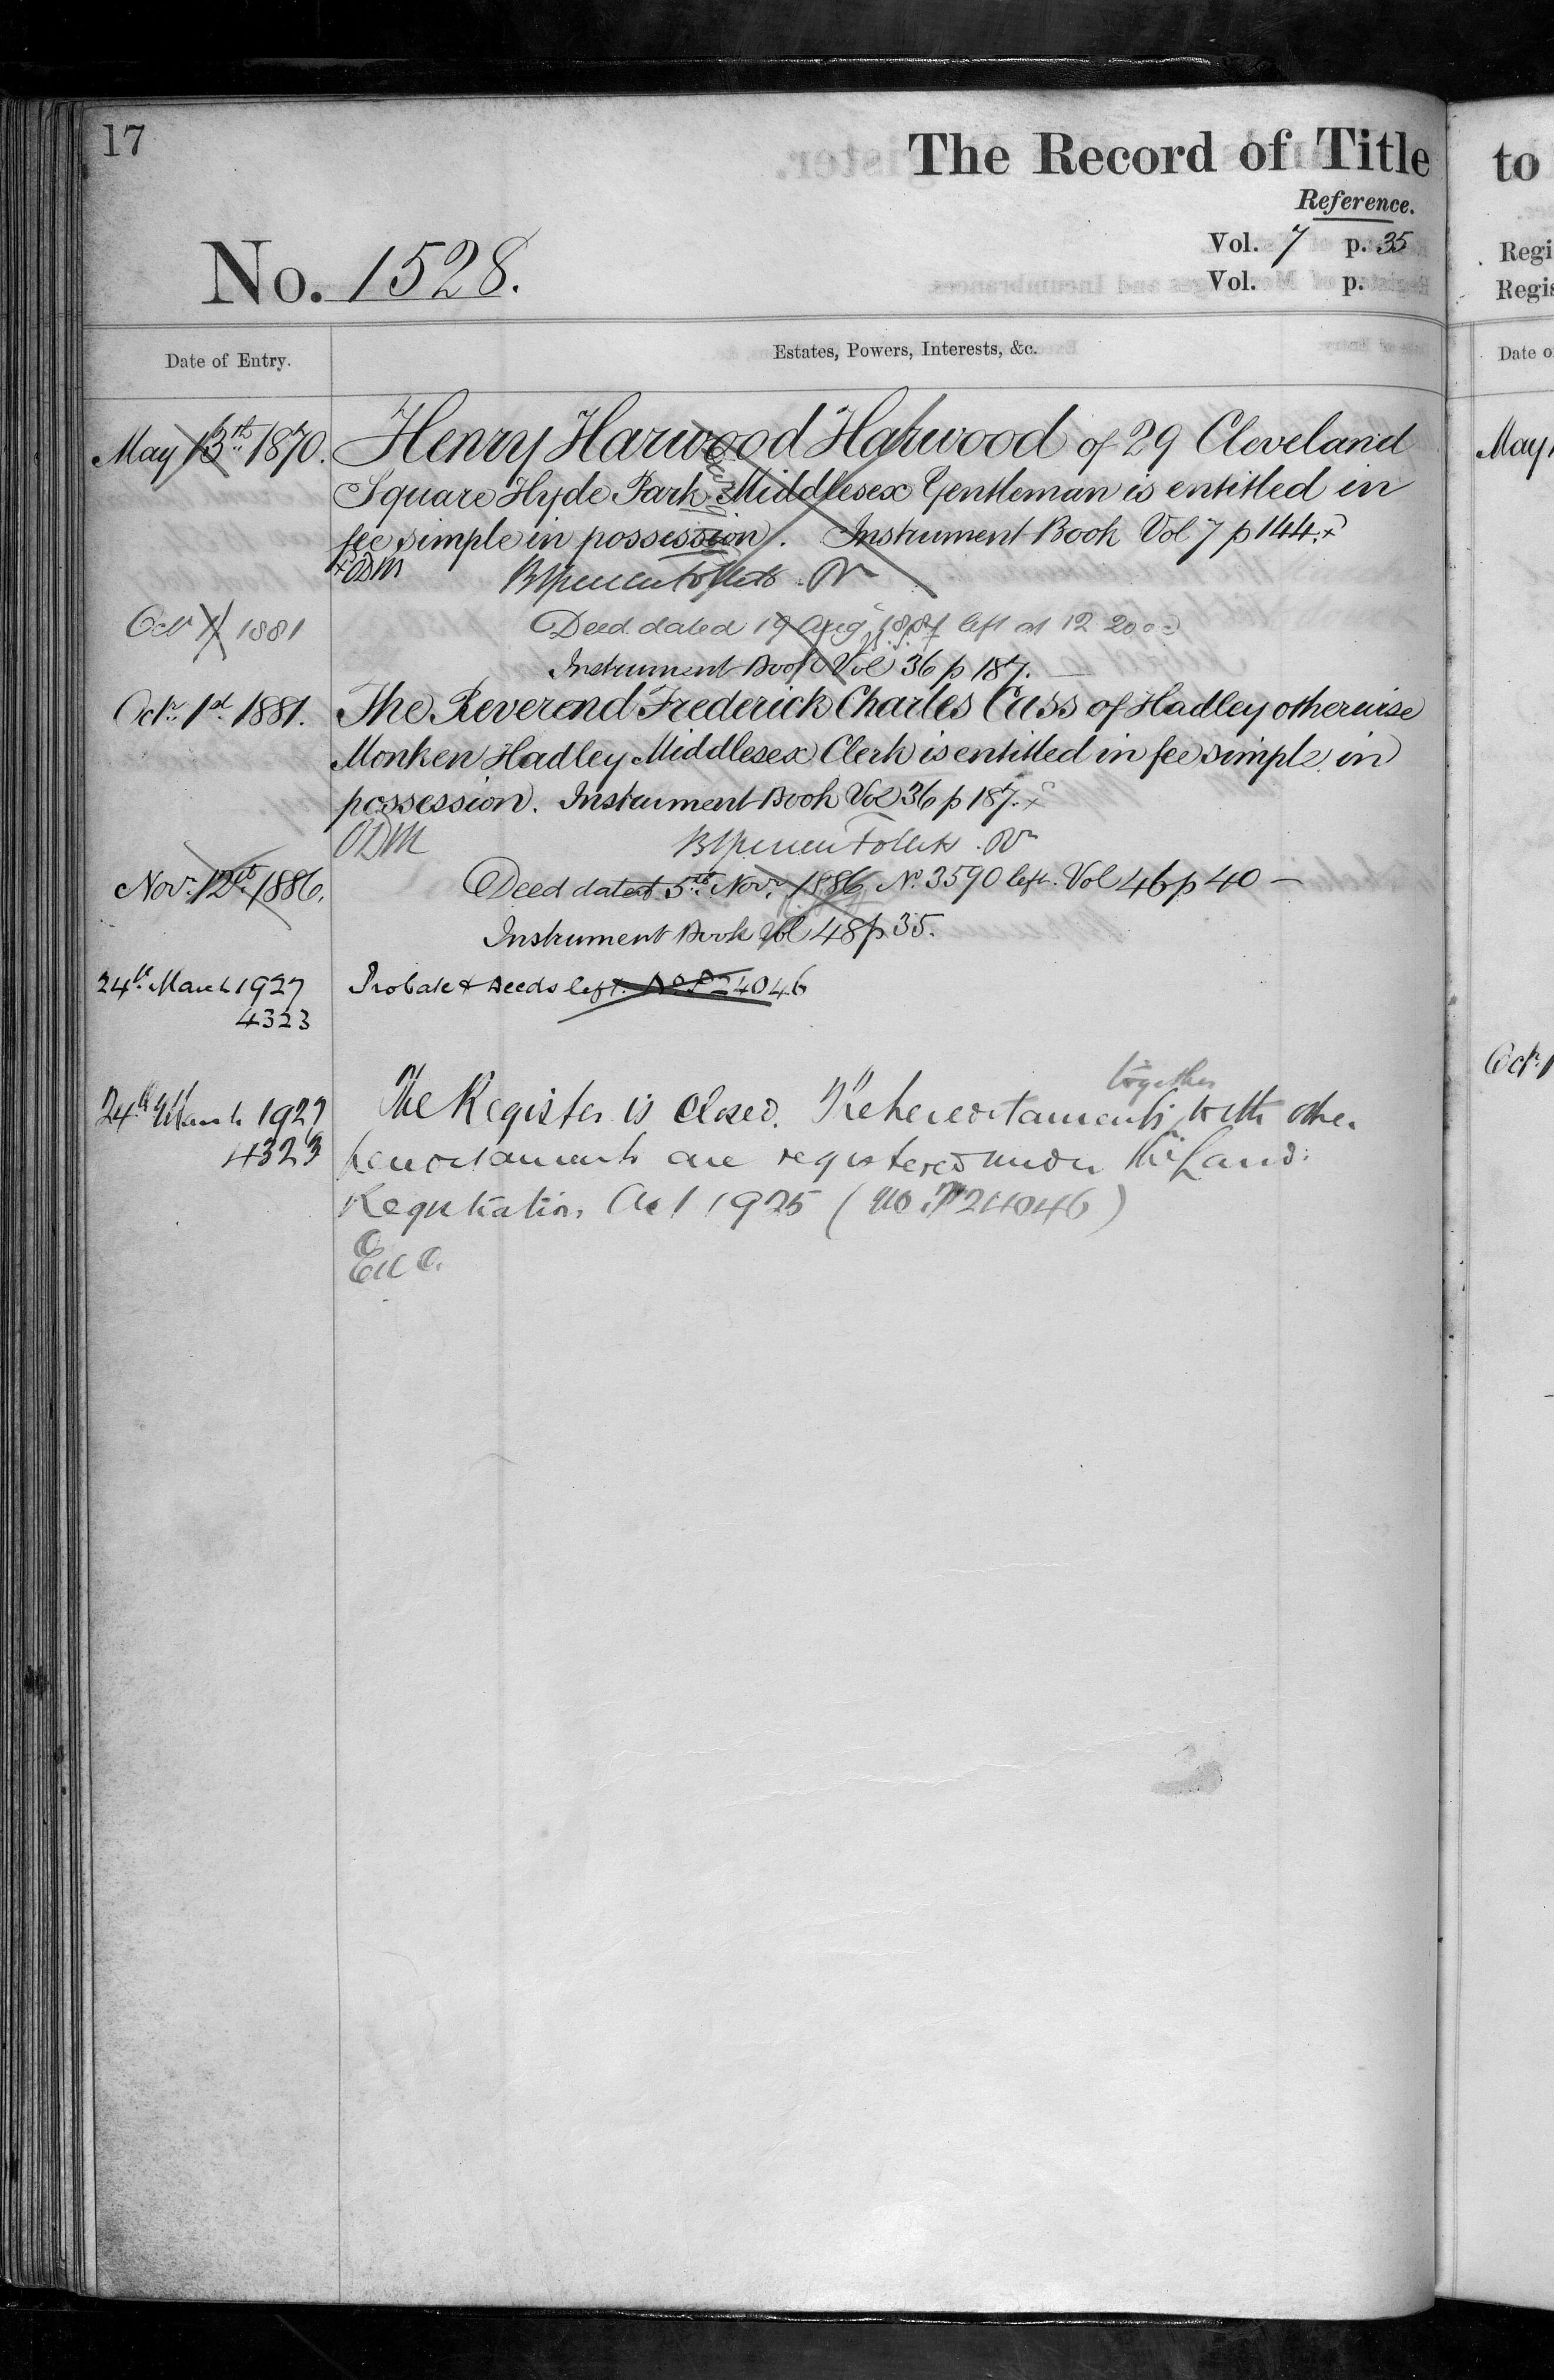 17
The Record of Title
Reference.
Vol. 7 p. 35
No. 1528.
Vol. p.
Date of Entry.
Estates, Powers, Interests, &c.
May 13th 1870. Henry Harwood Harwood of 29 Cleveland
Square Hyde Park Middlesex Gentleman is entitled in
fee simple in possession. Instrument Book Vol 7 p 144. x
x ODM
Oct 1 1881 Deed dated 19 Aug 1881 left at 12 20
Instrument Book Vol 36 p 187.
Octr. 1st. 1881. The Reverend Frederick Charles Cass of Hadley otherwise
Monken Hadley Middlesex Clerk is entitled in fee simple in
possession. Instrument Book Vol 36 p 187. x
ODM
Nov. 12th. 1886. Deed dated 5th. Novr. 1886 No. 3590 left. Vol 46 p 40 —
Instrument Book Vol 48 p 35.
24th. March 1927 Probate & Deeds left. No P24046
4323
together
24th March 1927 The Register is closed. The hereditaments with other
4323 hereditaments are registered under the Land
Registration Act 1925 (No. P24046)
to
Regi
Regis
Date o
May 1
Octr 1